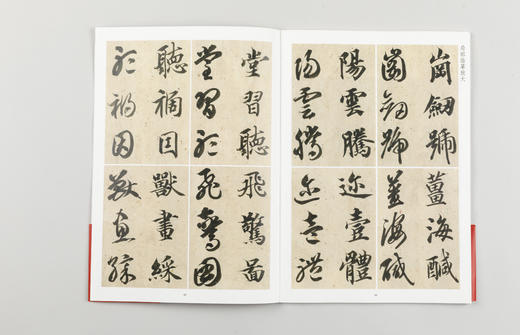 崗劒號
崗劒號
陽雲騰
陽雲騰
薑海鹹
薑海鹹
迩壹體
迩壹體
堂習聽
堂習聽
聽禍因
聽禍因
飛驚圖
飛驚圖
獸畫綵
獸畫綵